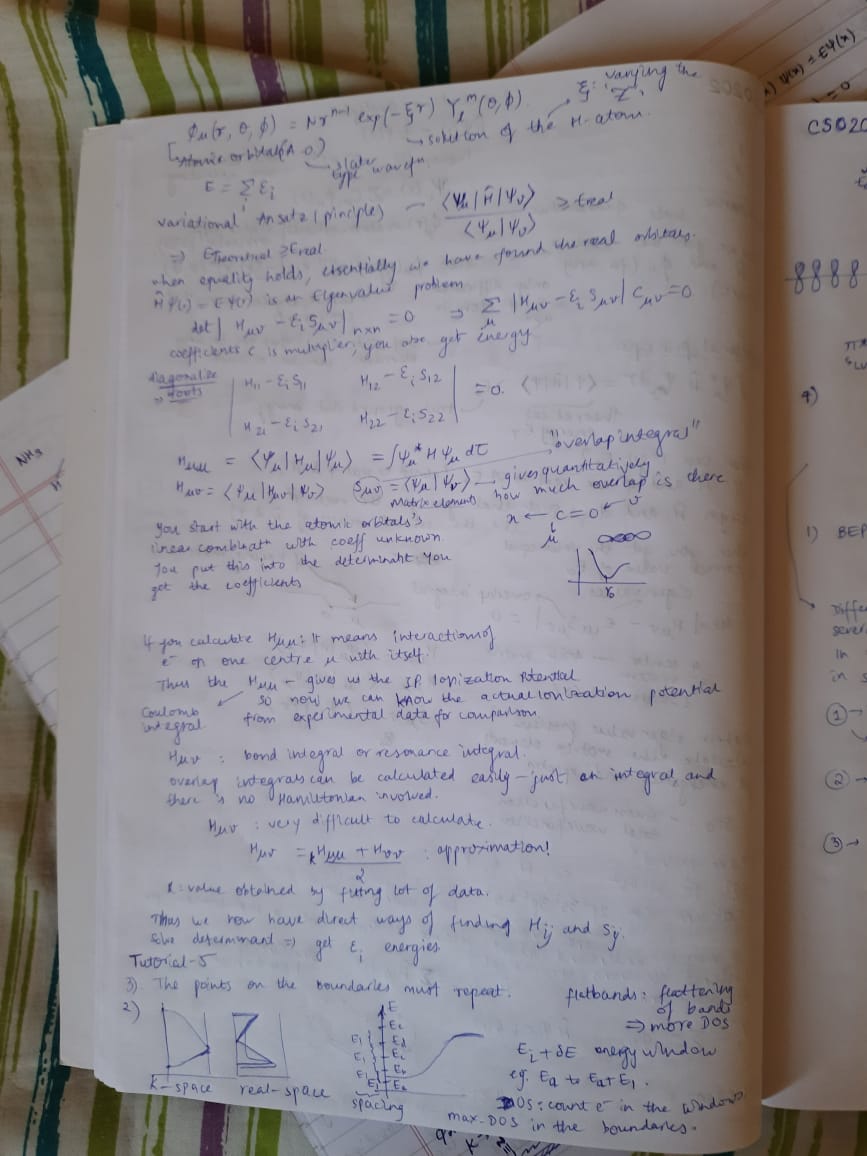 ξ: varying the 'Z'
Φμ(r, θ, φ) = N r^(n-1) exp(-ξr) Y_l^m (θ, φ).
→ solution of the H-atom.
[Atomic orbital (A.O)
→ slater type wavefn.
E = Σ_i ε_i
variational Ansatz (pinciple) - <Ψμ|Ĥ|Ψν> / <Ψμ|Ψν> ≥ Ereal
⇒ ETheoretical ≥ Ereal
when equality holds, essentially we have found the real orbitals.
Ĥψ(r) = Eψ(r) is an Eigenvalue problem
det | Hμν - εi Sμν | n×n = 0 ⇒ Σ_μ |Hμν - εi Sμν| Cμν = 0
coefficients c is multiplier, you also get energy
diagonalize ⇒ roots
| H11 - εi S11 H12 - εi S12 |
= 0.
| H21 - εi S21 H22 - εi S22 |
"overlap integral"
Hμμ = <Ψμ|Hμ|Ψμ> = ∫Ψμ* H Ψμ dτ
Hμν = <Ψμ|Hμν|Ψν> Sμν = <Ψμ|Ψν> → gives quantitatively
Matrix elements how much overlap is there
x ← C = O ← ν
μ
You start with the atomic orbitals's
linear combinatn with coeff unknown.
You put this into the determinant you
get the coefficients
r0
If you calculate Hμμ: It means interaction of
e- on one centre μ with itself.
Thus the Hμμ - gives us the IP Ionization Potential
so now we can know the actual ionization potential
from experimental data for comparison
Coulomb integral
Hμν : bond integral or resonance integral.
overlap integrals can be calculated easily - just an integral and
there is no Hamiltonian involved.
Hμν : very difficult to calculate.
Hμν = k Hμμ + Hνν / 2 : approximation!
k: value obtained by fitting lot of data.
Thus we now have direct ways of finding Hij and Sij.
Solve determinant ⇒ get εi energies
Tutorial-5
3) The points on the boundaries must repeat.
flatbands: flattening
of bands
⇒ more DOS
2)
k-space
real-space
E
Ee
Ed
Ec
Eb
Ea
E1
E1
E1
E1
spacing
Ei + δE energy window
eg. Ea to Ea+E1.
DOS: count e- in the window
max-DOS in the boundaries.
NH3
ψ(x) = Eψ(x)
= 0
CS020
4)
1) BEP
Differ
sever
in
in s
① →
② →
③ →